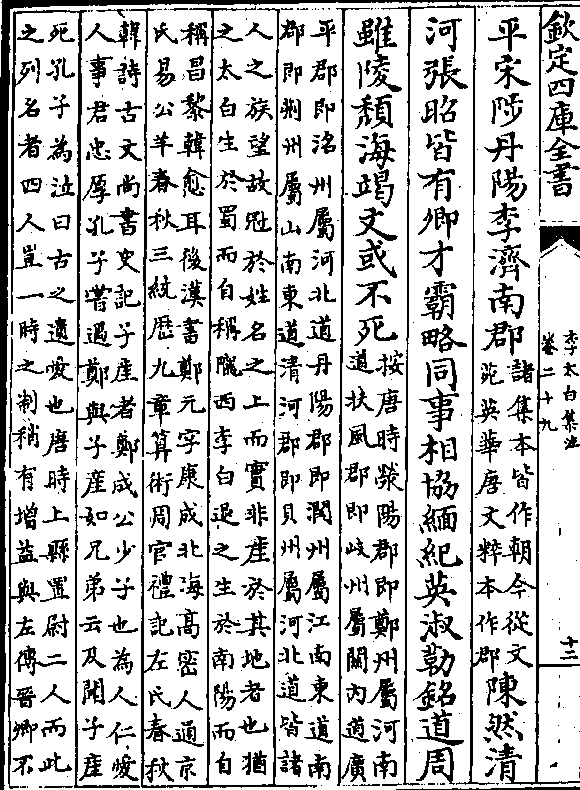 欽定四庫全書
李太白集注
卷二十九
十二
平宋陟丹陽李濟南郡諸集本皆作朝今從文
苑英華唐文粹本作郡陳然清
河張昭皆有卿才霸略同事相協緬紀英淑勒銘道周
雖陵頽海竭文或不死按唐時滎陽郡即鄭州屬河南
道扶風郡即岐州屬關內道廣
平郡即洺州屬河北道丹陽郡即潤州屬江南東道南
郡即荆州屬山南東道清河郡即貝州屬河北道皆諸
人之族望故冠於姓名之上而實非産於其地者也猶
之太白生於蜀而自稱隴西李白退之生於南陽而自
稱昌黎韓愈耳後漢書鄭元字康成北海髙密人通京
氏易公羊春秋三統歷九章算術周官禮記左氏春秋
韓詩古文尚書史記子産者鄭成公少子也為人仁愛
人事君忠厚孔子嘗過鄭與子産如兄弟云及聞子産
死孔子為泣曰古之遺愛也唐時上縣置尉二人而此
之列名者四人豈一時之制稍有增益與左傳晉卿不